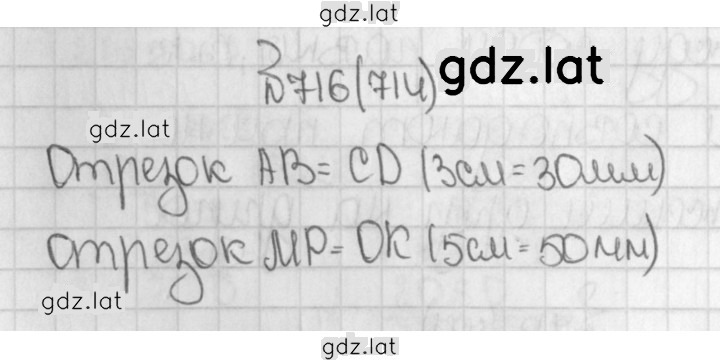 gdz.lat
№716(714) gdz.lat
gdz.lat
Отрезок AB = CD (3см = 30мм)
отрезок MP = OK (5см = 50мм)
gdz.lat
gdz.lat